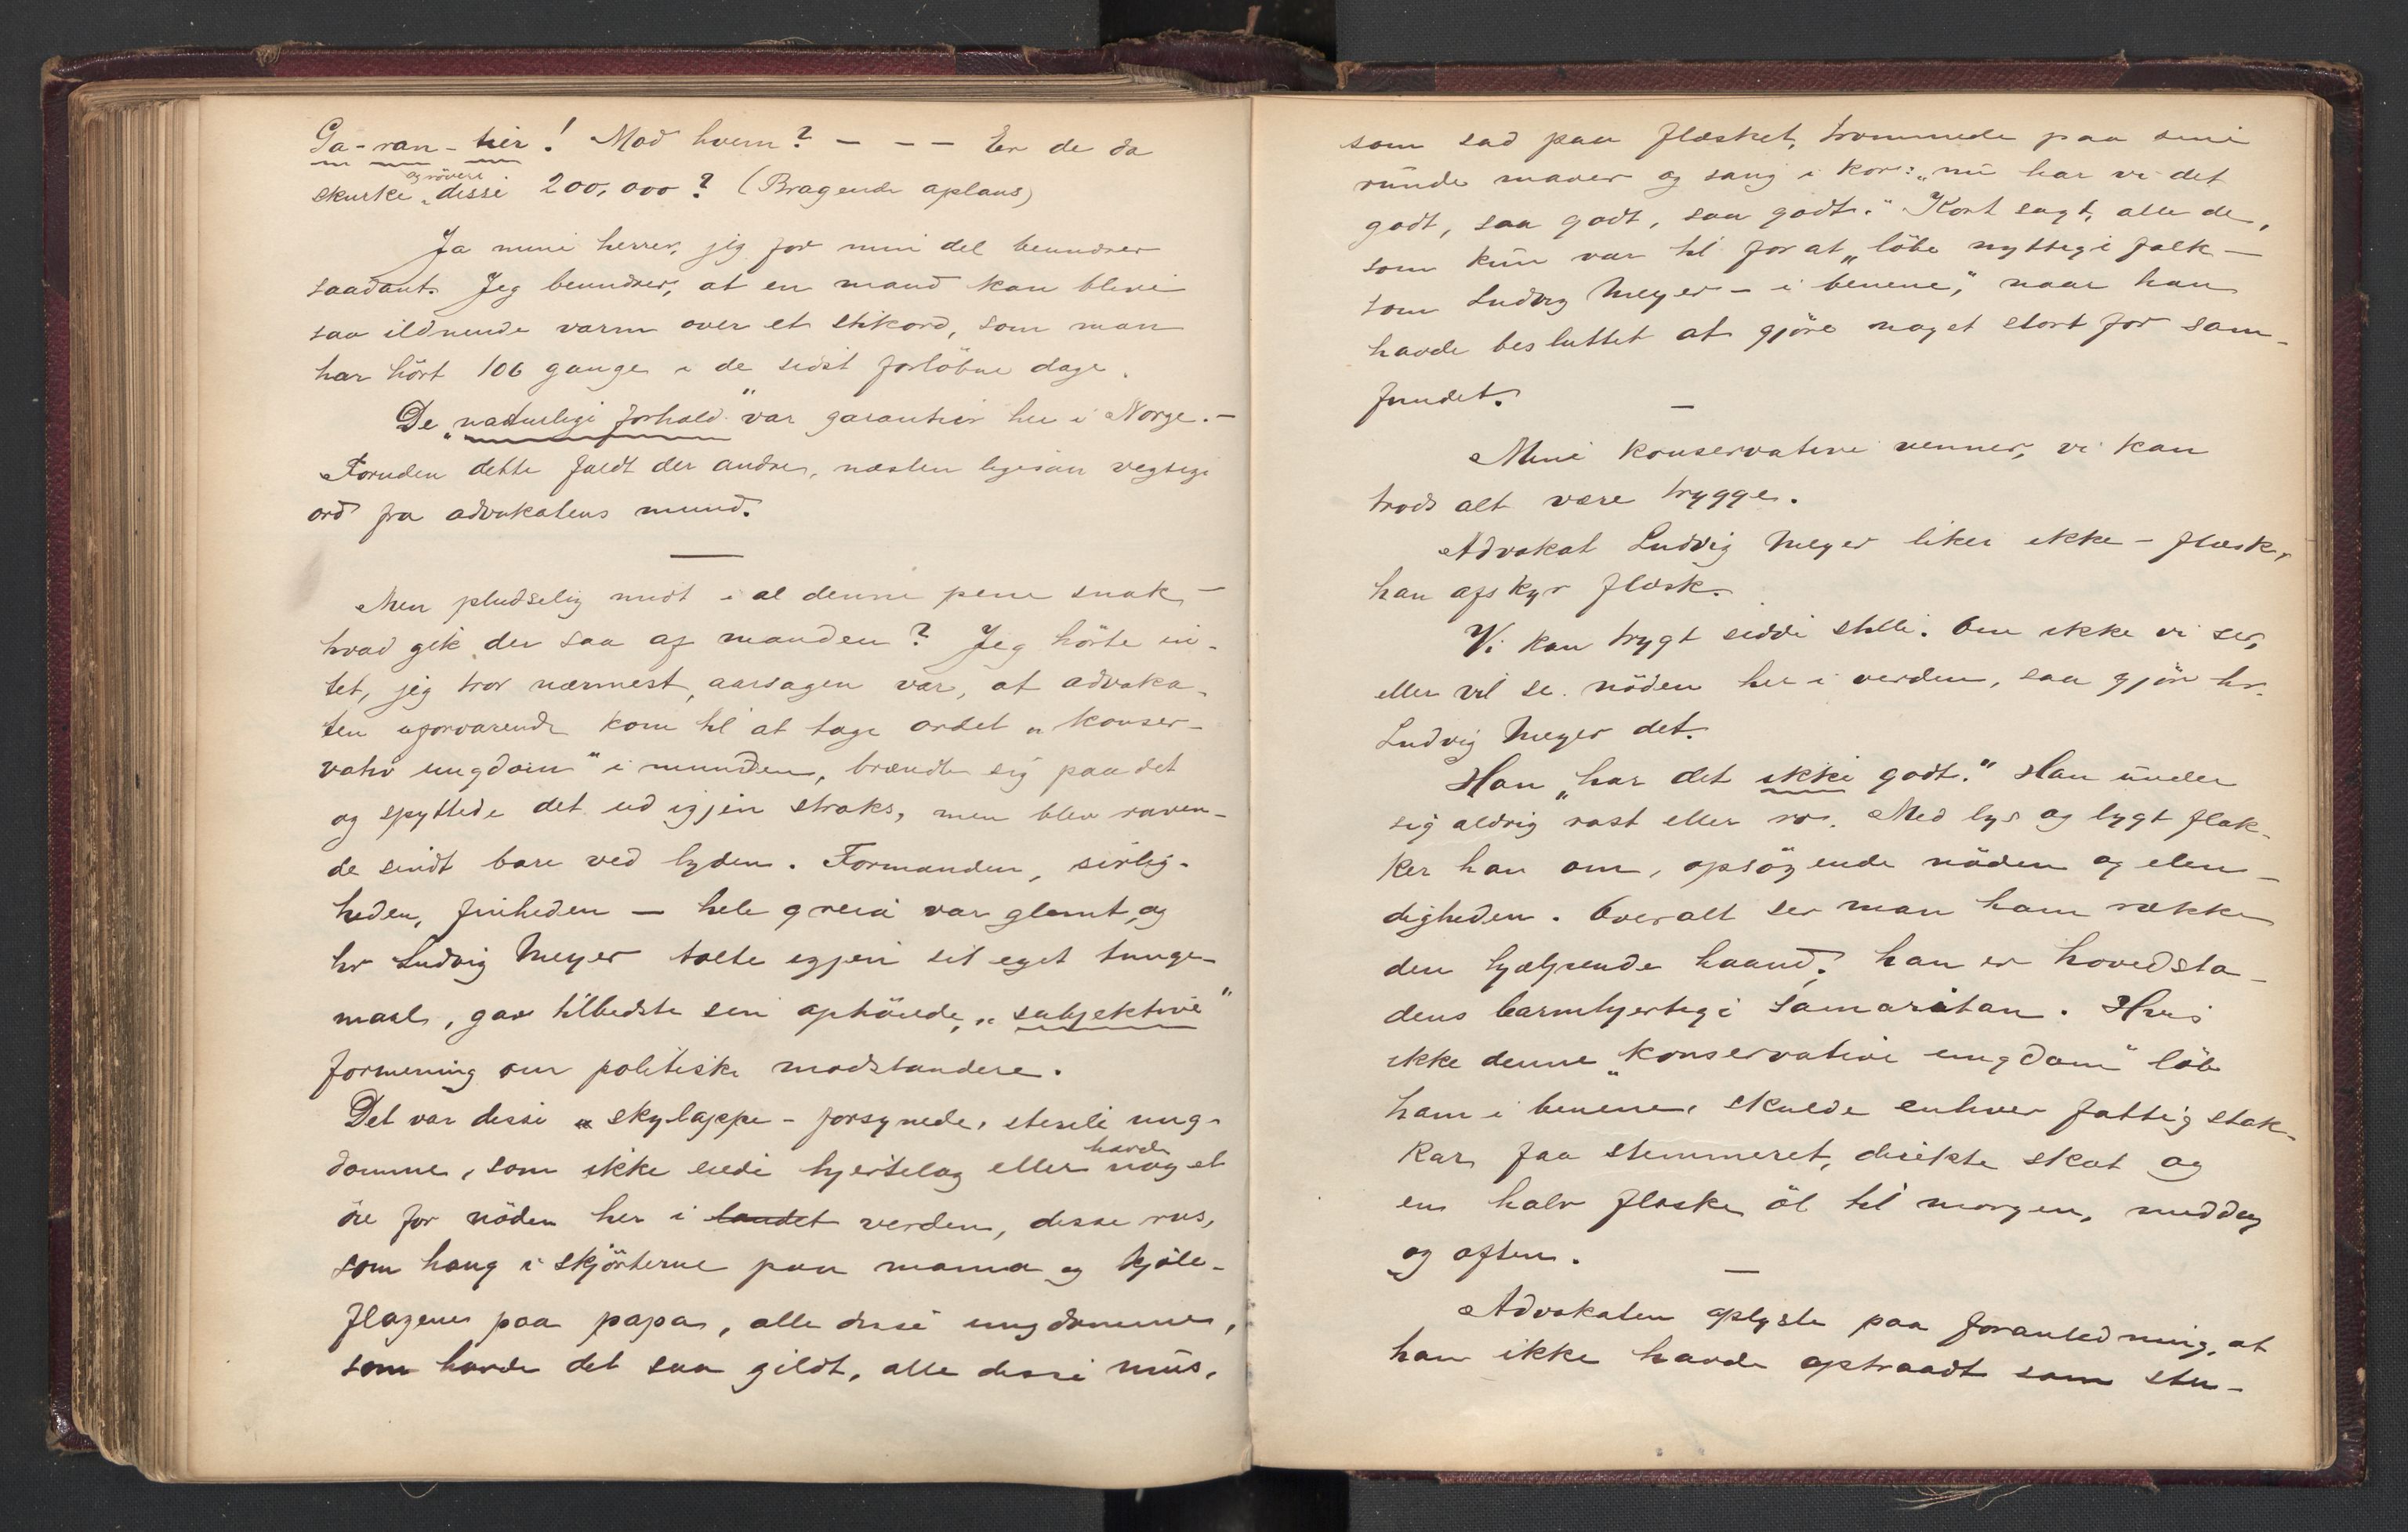 Ga-ran-tier! Mod hvem? — — — Er de da
skurke og rövere disse 200,000? (Bragende aplaus)
Ja mine herrer, jeg for min del beundrer
saadant. Jeg beundrer, at en mand kan blive
saa ildnende varm over et stikord, som man
har hört 106 gange i de sidst forlöbne dage.
De „naturlige forhold" var garantier her i Norge. —
Foruden dette faldt der andre, næsten ligesaa vegtige
ord fra advokatens mund.
Men pludselig midt i al denne pene snak —
hvad gik der saa af manden? Jeg hörte in-
tet, jeg tror nærmest, aarsagen var, at advoka-
ten uforvarende kom til at tage ordet „konser-
vativ ungdom" i munden, brændte sig paa det
og spyttede det ud igjen straks, men blev raven-
de sindt bare ved lyden. Formanden, sirlig-
heden, finheden — hele greia var glemt, og
hr Ludvig Meyer talte igjen sit eget tunge-
maal, gav tilbedste sin ophöiede, „subjektive"
formening om politiske modstandere.
Det var disse „skylappe-forsynede, sterile ung-
domme, som ikke eiede hjertelag eller havde noget
öie for nöden her i landet verden, disse
som hang i skjörterne paa mama og kjole-
flagene paa papa, alle disse ungdomme,
som havde det saa gildt, alle disse mus,
som sad paa flæsket, trommede paa sine
runde maver og sang i kor: „nu har vi det
godt, saa godt, saa godt." Kort sagt, alle de,
som kun var til for at „löbe nyttige folk —
som Ludvig Meyer — i benene," naar han
havde besluttet at gjöre noget stort for sam-
fundet.
—
Mine konservative venner, vi kan
trods alt være trygge.
Advokat Ludvig Meyer liker ikke — flæsk,
han afskyr flæsk.
Vi kan trygt sidde stille. Om ikke vi ser,
eller vil se nöden her i verden, saa gjör hr.
Ludvig Meyer det.
Han „har det ikke godt." Han under
sig aldrig rast eller ro. Med lys og lygt flak-
ker han om, opsögende nöden og elen-
digheden. Overalt ser man ham række
den hjælpende haand; han er hovedsta-
dens barmhjertige samaritan. Hvis
ikke denne „konservative ungdom" löb
ham i benene, skulde enhver fattig stak-
kar faa stemmeret, direkte skat og
en halv flaske öl til morgen, middag
og aften.
—
Advokaten oplyste paa foranledning, at
han ikke havde optraadt som stu-